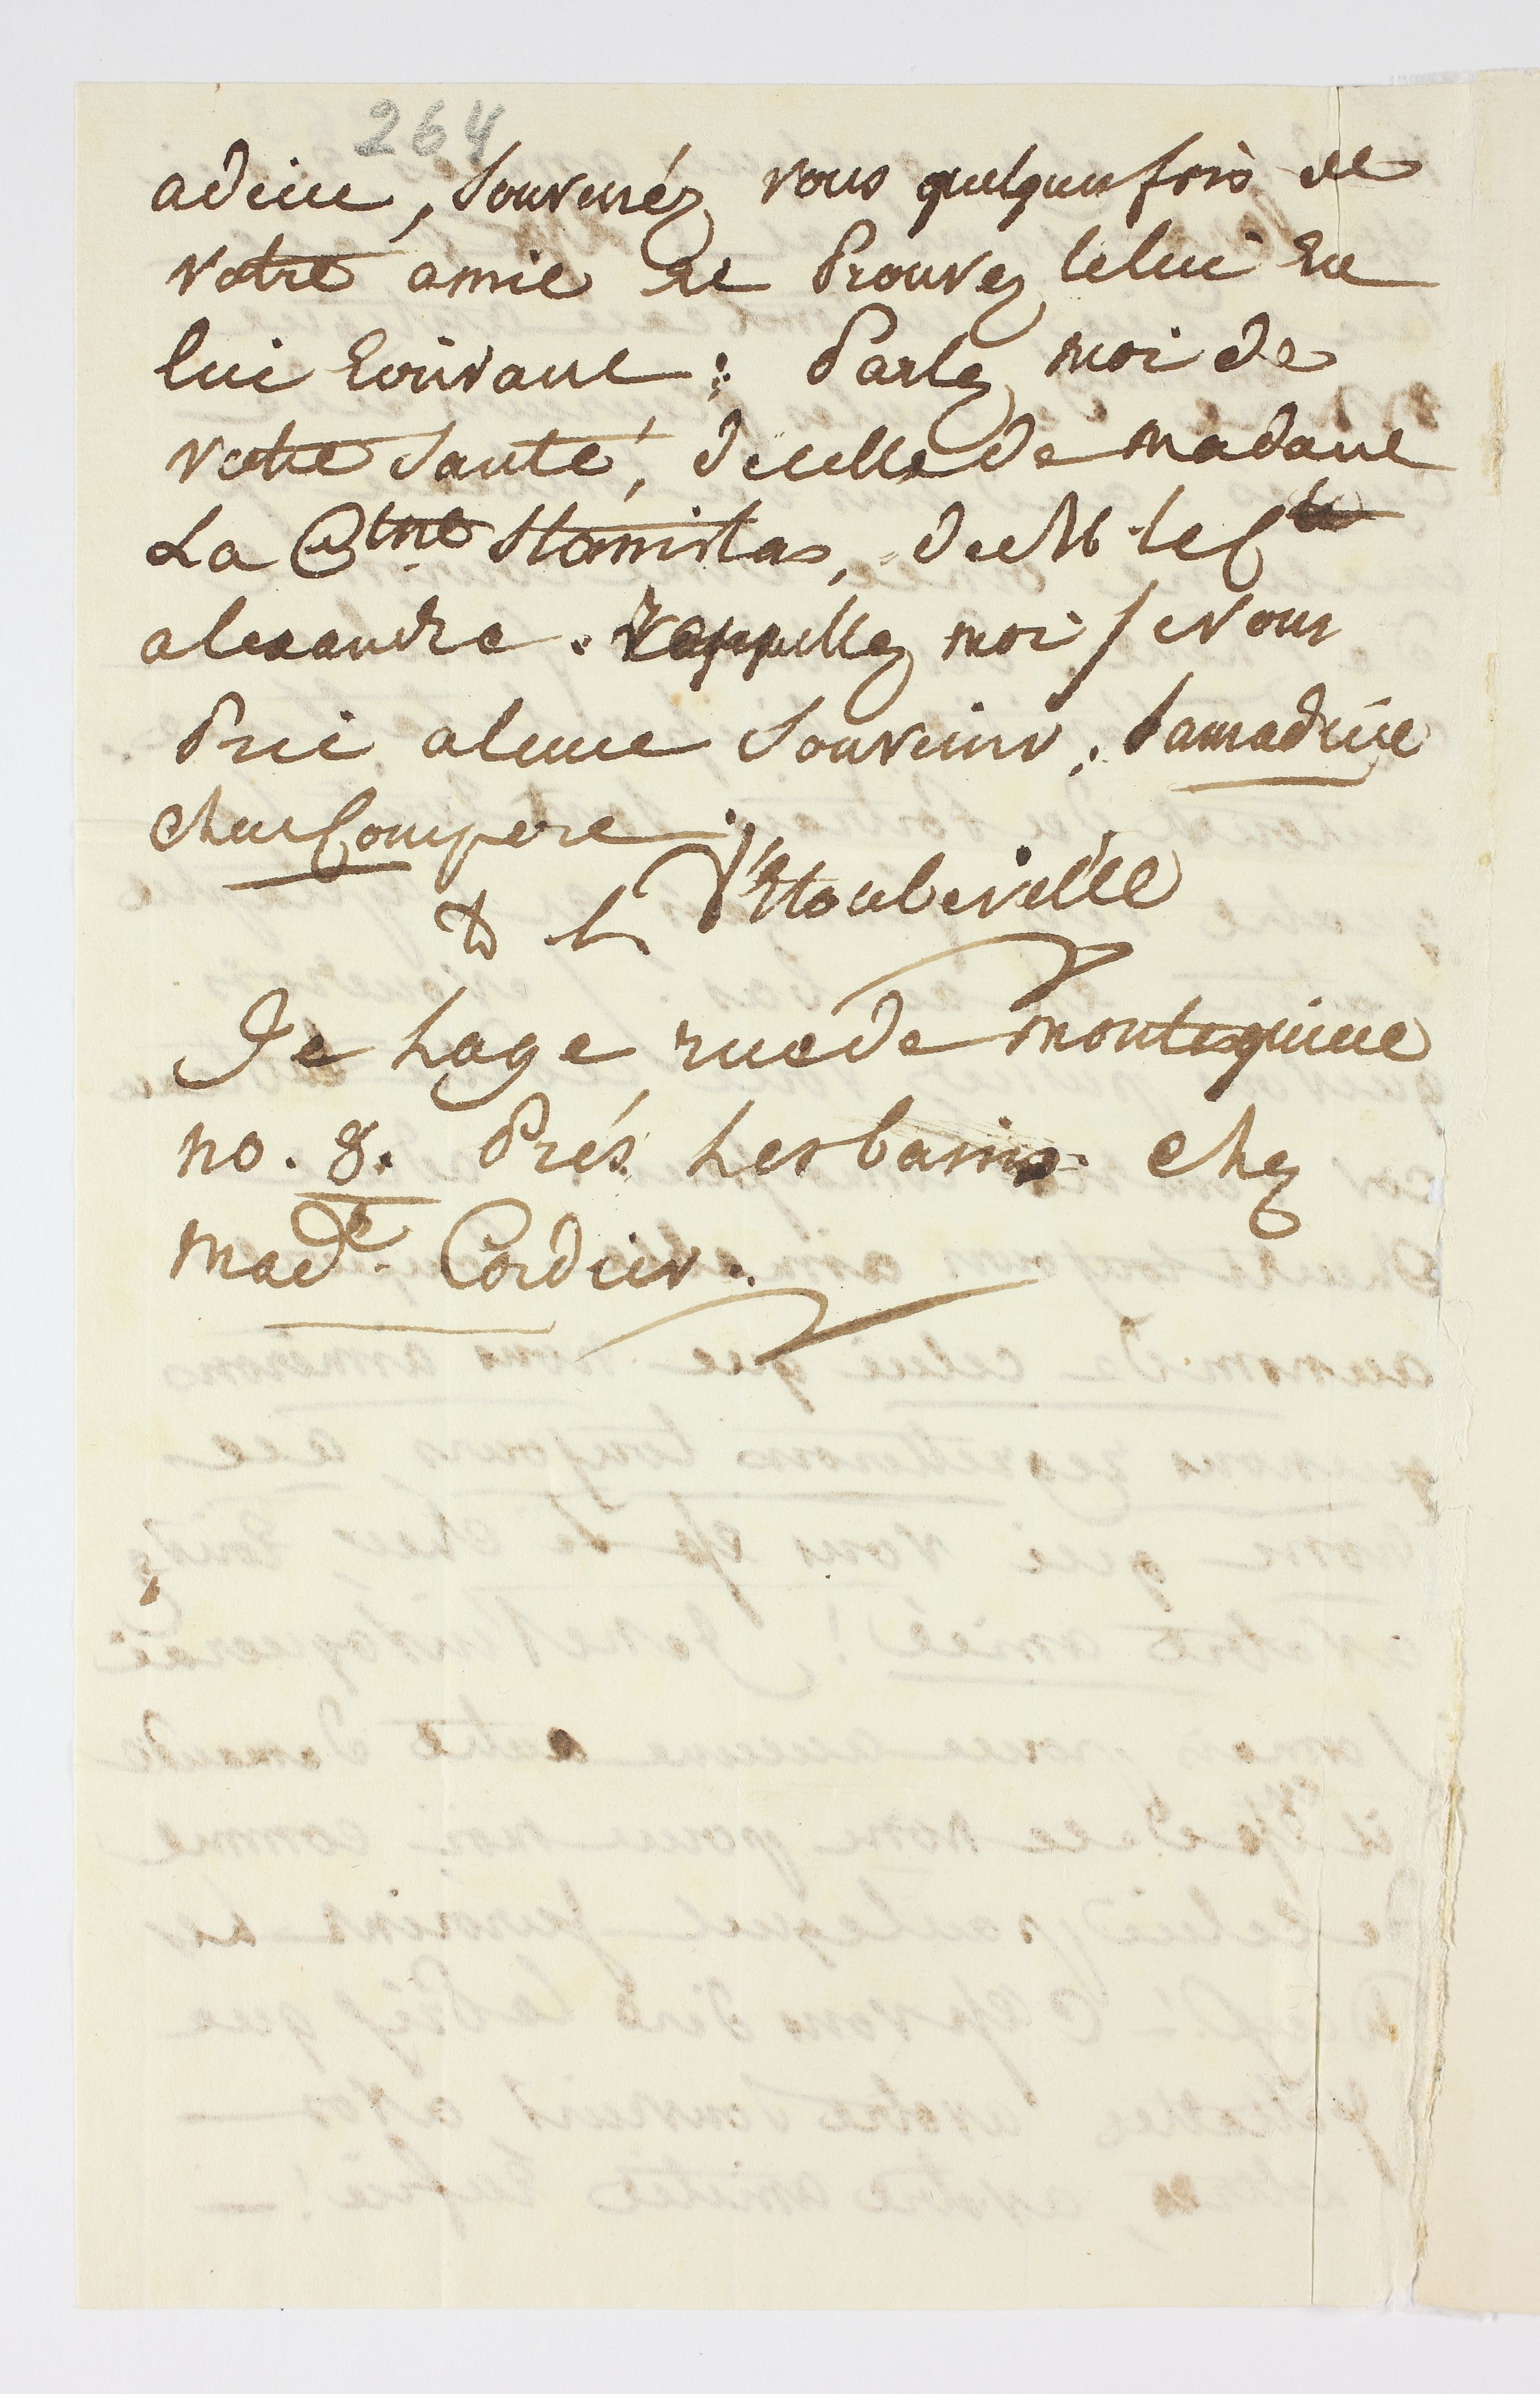 264
adieu, Souvenéz vous quelques fois de
votre amie et Prouvez lelui En
lui Ecrivant : Parlez moi de
votre Santé, decelle de Madame
La Ctsse Stanislas, de M le Cte
alexandre. rappellez moi je vous
Prie aleur Souvenir.
cher Compere
L d'Houbeville
Je Loge ruede Montesquieu
no. 8. Prés Les bains chez
Made. Cordier.